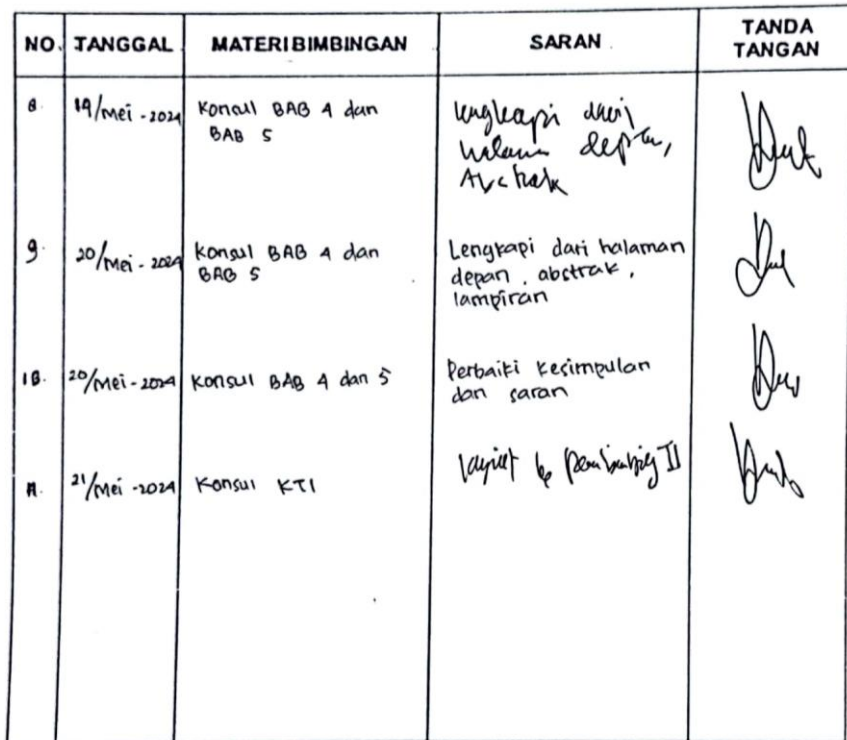 NO. TANGGAL MATERI BIMBINGAN SARAN TANDA TANGAN
8. 19/Mei-2024 Konsul BAB 4 dan BAB 5 Lengkapi dari halaman depan, Abstrak
9. 20/Mei-2024 Konsul BAB 4 dan BAB 5 Lengkapi dari halaman depan, abstrak, lampiran
10. 20/Mei-2024 Konsul BAB 4 dan 5 Perbaiki kesimpulan dan saran
11. 21/Mei-2024 Konsul KTI lanjut ke pembimbing II